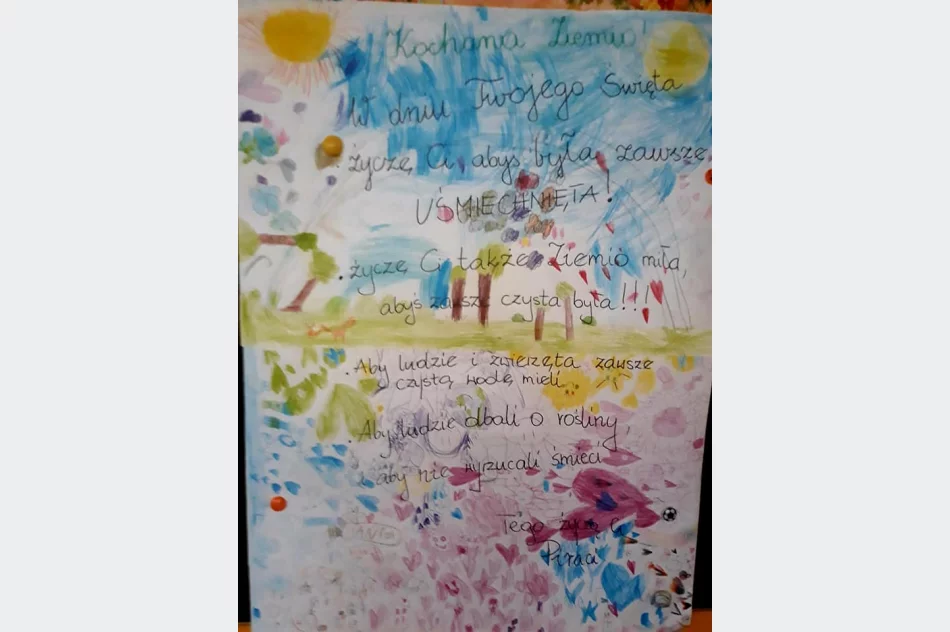 Kochana Ziemio!
W dniu Twojego Święta
życzę Ci, abyś była zawsze
UŚMIECHNIĘTA!
. życzę Ci także Ziemio miła,
abyś zawsze czysta była!!!
. Aby ludzie i zwierzęta zawsze
czystą wodę mieli.
. Aby ludzie dbali o rośliny,
i aby nie wyrzucali śmieci
Tego życzą Ci
Piraci